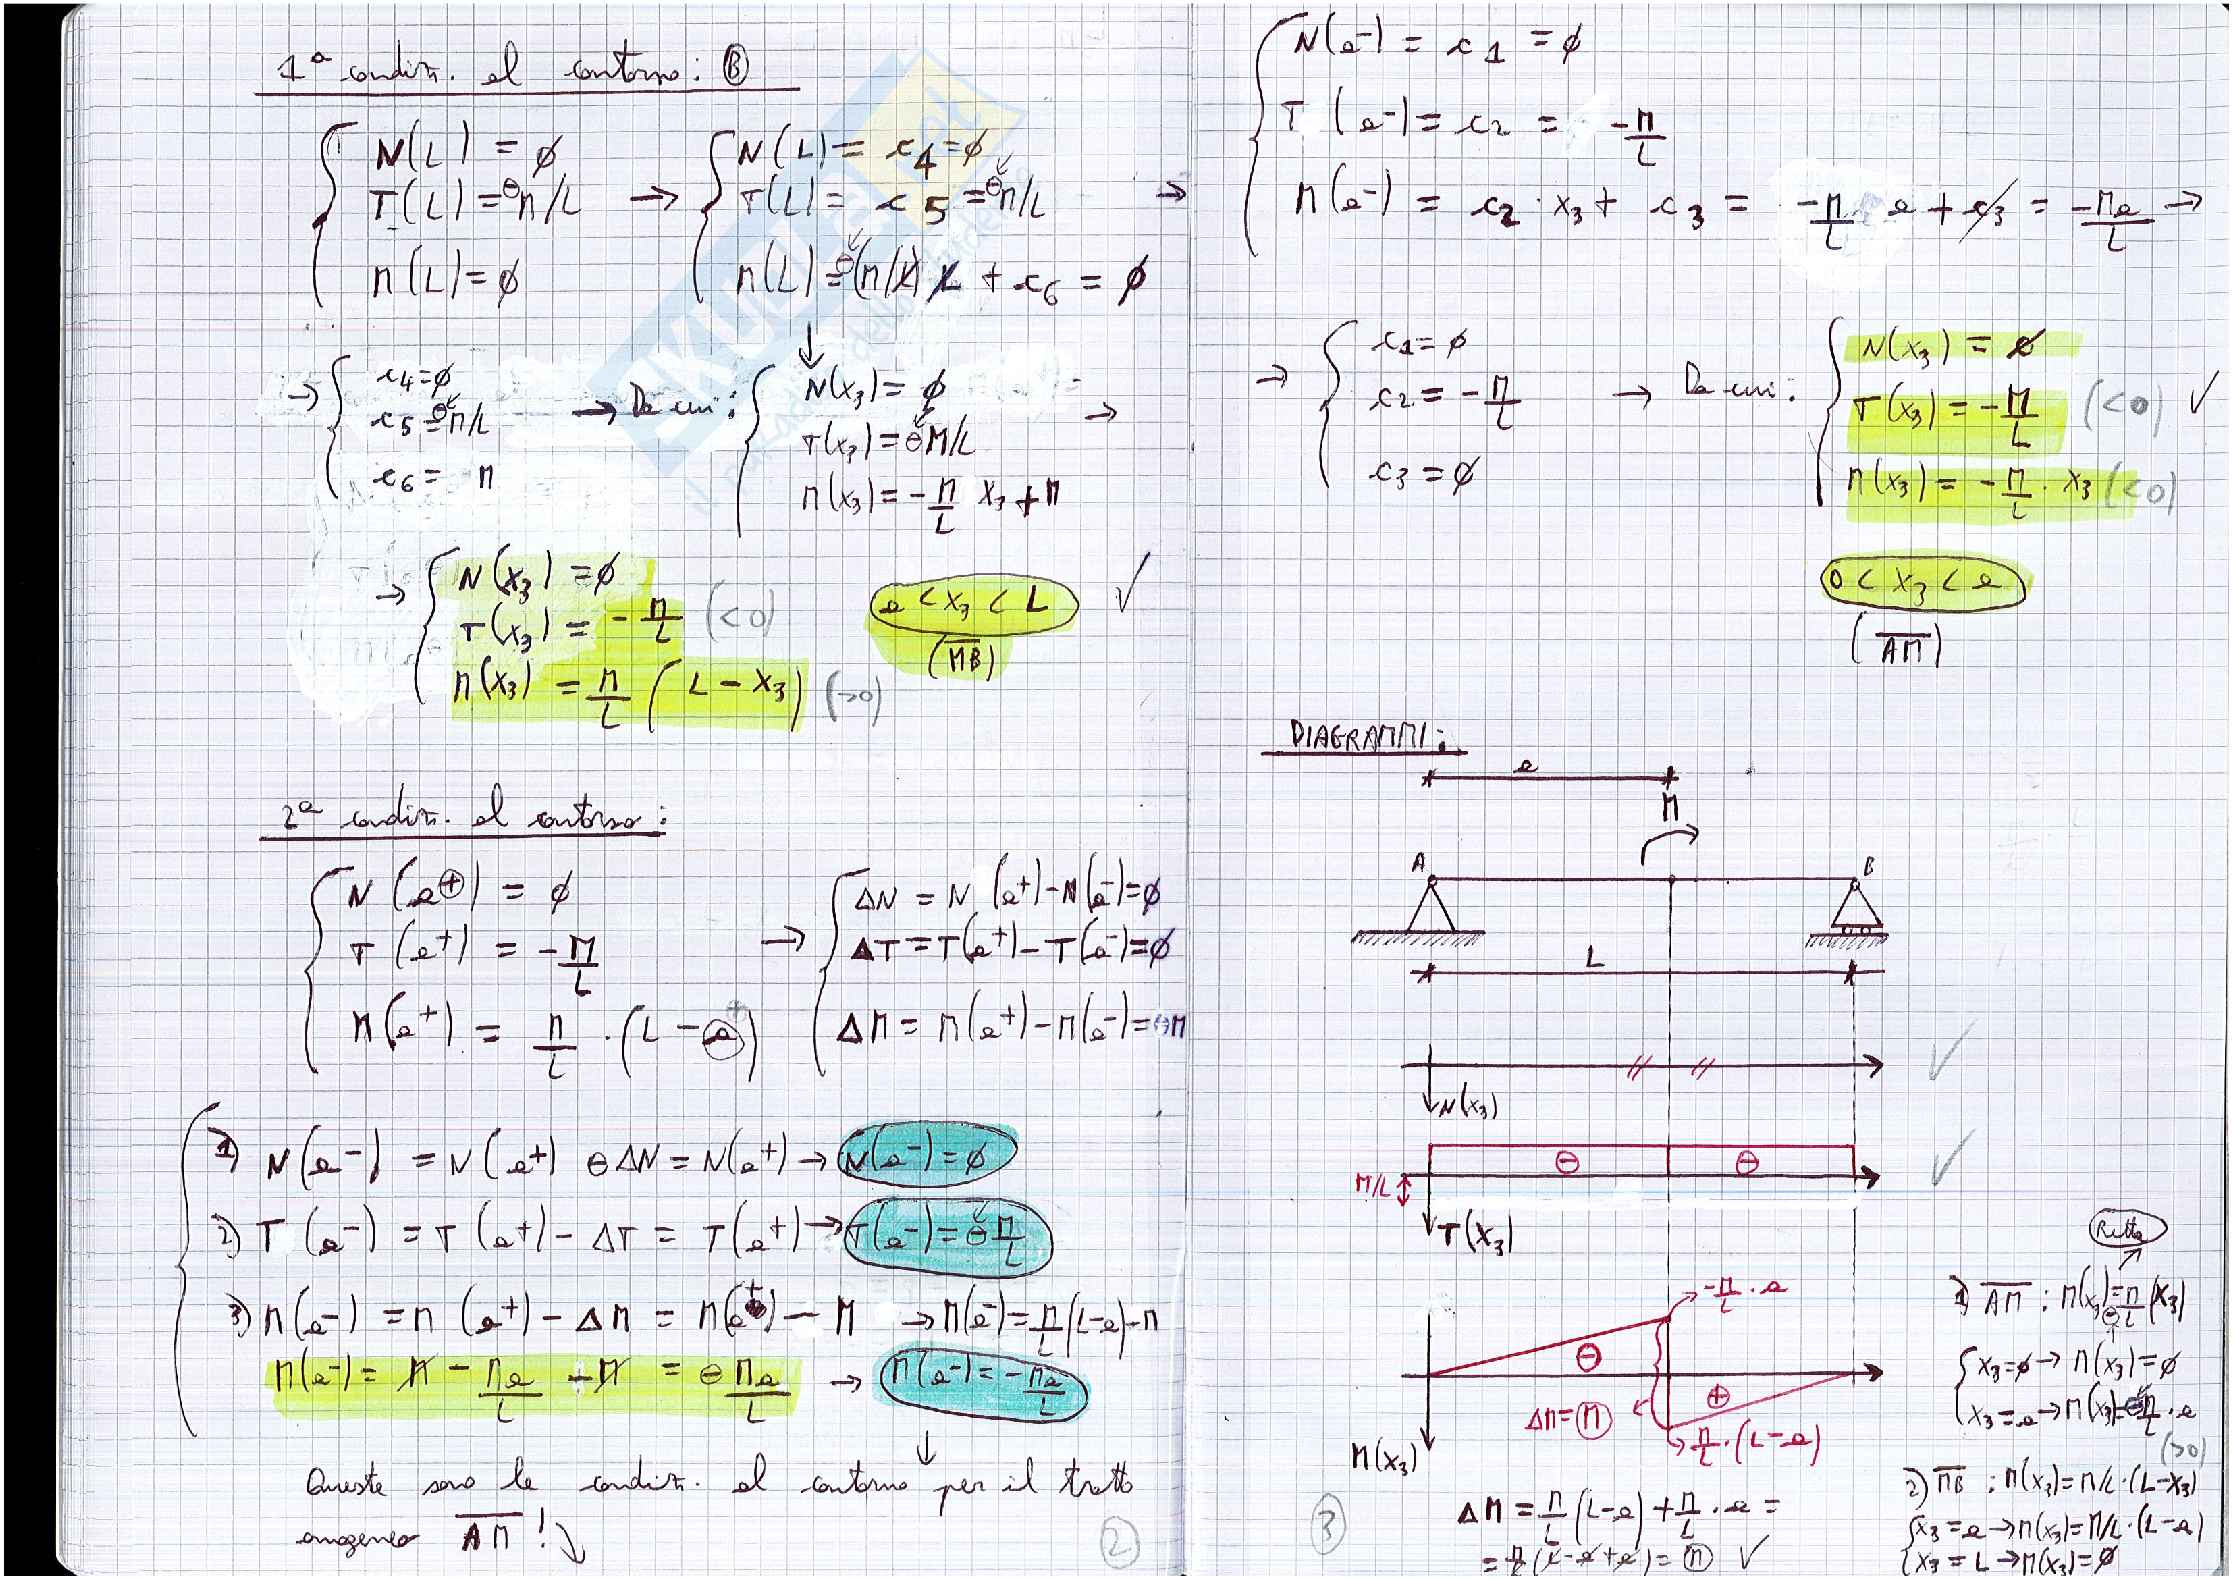 1ª condiz. al contorno: Ⓑ
N(L) = ∅
T(L) = ⊖M/L
M(L) = ∅
→
N(L) = c4 = ∅
T(L) = c5 = ⊖M/L
M(L) = ⊖(M/L) L + c6 = ∅
→
→ c4 = ∅
c5 = ⊖M/L
c6 = M
→ Da cui:
N(x3) = ∅
T(x3) = ⊖M/L
M(x3) = -M/L x3 + M
→
→ N(x3) = ∅
T(x3) = -M/L (<0)
M(x3) = M/L (L - x3) (>0)
a < x3 < L ✓
(MB)
2ª condiz. al contorno:
N(a⊕) = ∅
T(a+) = -M/L
M(a+) = M/L · (L - a+)
→
ΔN = N(a+) - N(a-) = ∅
ΔT = T(a+) - T(a-) = ∅
ΔM = M(a+) - M(a-) = ⊕M
1) N(a-) = N(a+) ⊖ ΔN = N(a+) → N(a-) = ∅
2) T(a-) = T(a+) - ΔT = T(a+) → T(a-) = ⊖M/L
3) M(a-) = M(a+) - ΔM = M(a+) - M → M(a-) = M/L (L-a) - M
M(a-) = M - Ma/L - M = ⊖ Ma/L → M(a-) = -Ma/L
Queste sono le condiz. al contorno per il tratto
omogeneo AM!
2
N(a-) = c1 = ∅
T(a-) = c2 = -M/L
M(a-) = c2 · x3 + c3 = -M/L a + c3 = -Ma/L →
→ c1 = ∅
c2 = -M/L
c3 = ∅
→ Da cui:
N(x3) = ∅
T(x3) = -M/L (<0) ✓
M(x3) = -M/L · x3 (<0)
0 < x3 < a
(AM)
DIAGRAMMI:
a
M
A
B
L
N(x3)
⊖ ⊖
M/L
T(x3)
-M/L · a
⊖
⊕
ΔM = Ⓜ
M/L · (L-a)
M(x3)
ΔM = M/L (L-a) + M/L · a =
= M/L (L - a + a) = Ⓜ ✓
3
Retta
1) AM : M(x3) = ⊖M/L (x3)
x3 = ∅ → M(x3) = ∅
x3 = a → M(x3) = ⊖M/L · a
(>0)
2) MB : M(x3) = M/L · (L-x3)
x3 = a → M(x3) = M/L · (L-a)
x3 = L → M(x3) = ∅